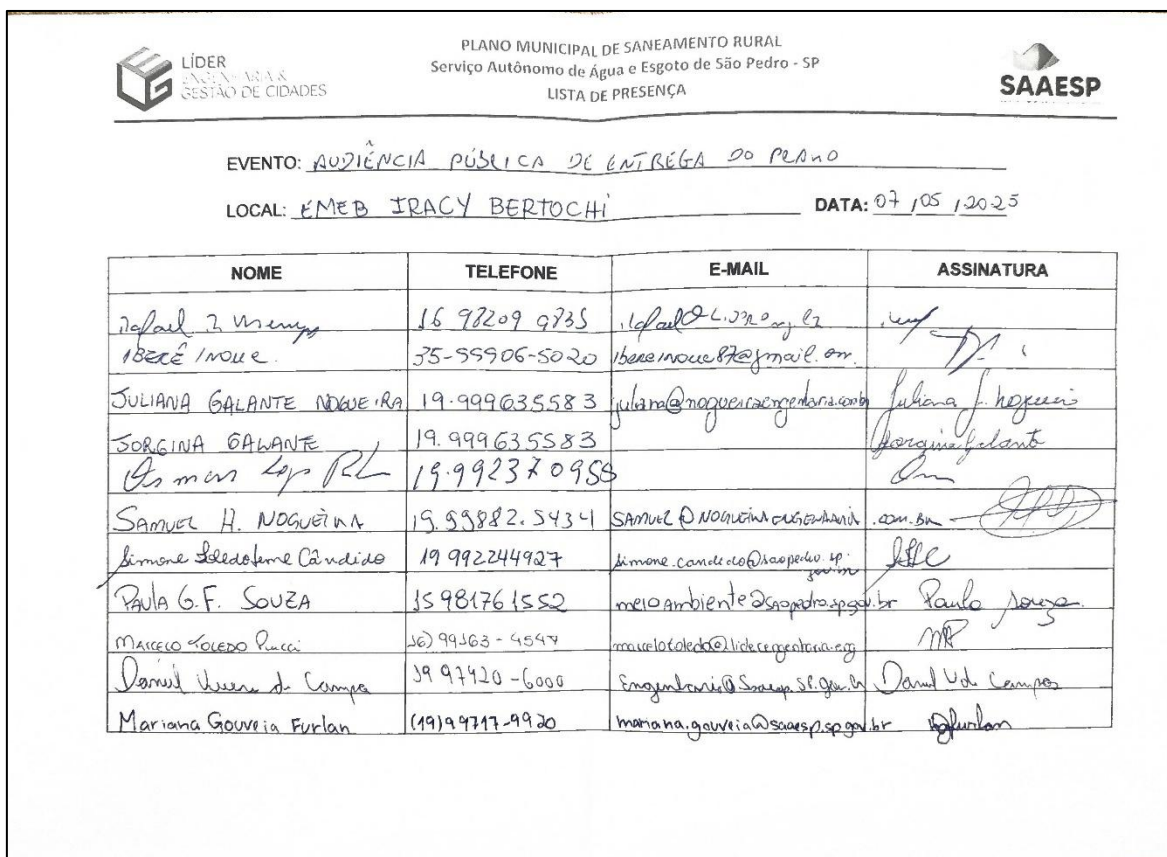 LÍDER
ENGENHARIA &
GESTÃO DE CIDADES
PLANO MUNICIPAL DE SANEAMENTO RURAL
Serviço Autônomo de Água e Esgoto de São Pedro - SP
LISTA DE PRESENÇA
SAAESP
EVENTO: AUDIÊNCIA PÚBLICA DE ENTREGA DO PLANO
LOCAL: EMEB IRACY BERTOCHI DATA: 07/05/2025
NOME TELEFONE E-MAIL ASSINATURA
Rafael 16 98209 9835
IBERÊ INOUE. 35-99906-5020 ibereinoue87@gmail.om
JULIANA GALANTE NOGUEIRA 19.999635583 juliana@nogueiraengenharia.com.br Juliana G. Nogueira
JORGINA GALANTE 19.999635583 Jorgina Galante
Osmar 19.992370958
SAMUEL H. NOGUEIRA 19.99882.5434 SAMUEL@NOGUEIRAENGENHARIA.COM.BR
Simone Toledo Leme Cândido 19 992244927 simone.candido@saopedro.sp.gov.br
PAULA G.F. SOUZA 15981761552 meioambiente@saopedro.sp.gov.br Paula Souza
MARCELO TOLEDO Pucci 16) 99163-4547 marcelotoledo@liderengenharia.eng
Daniel de Campos 19 97420-6000 Engenharia@Saaesp.SP.gov.br Daniel V de Campos
Mariana Gouveia Furlan (19)99717-9920 mariana.gouveia@saaesp.sp.gov.br mgfurlan